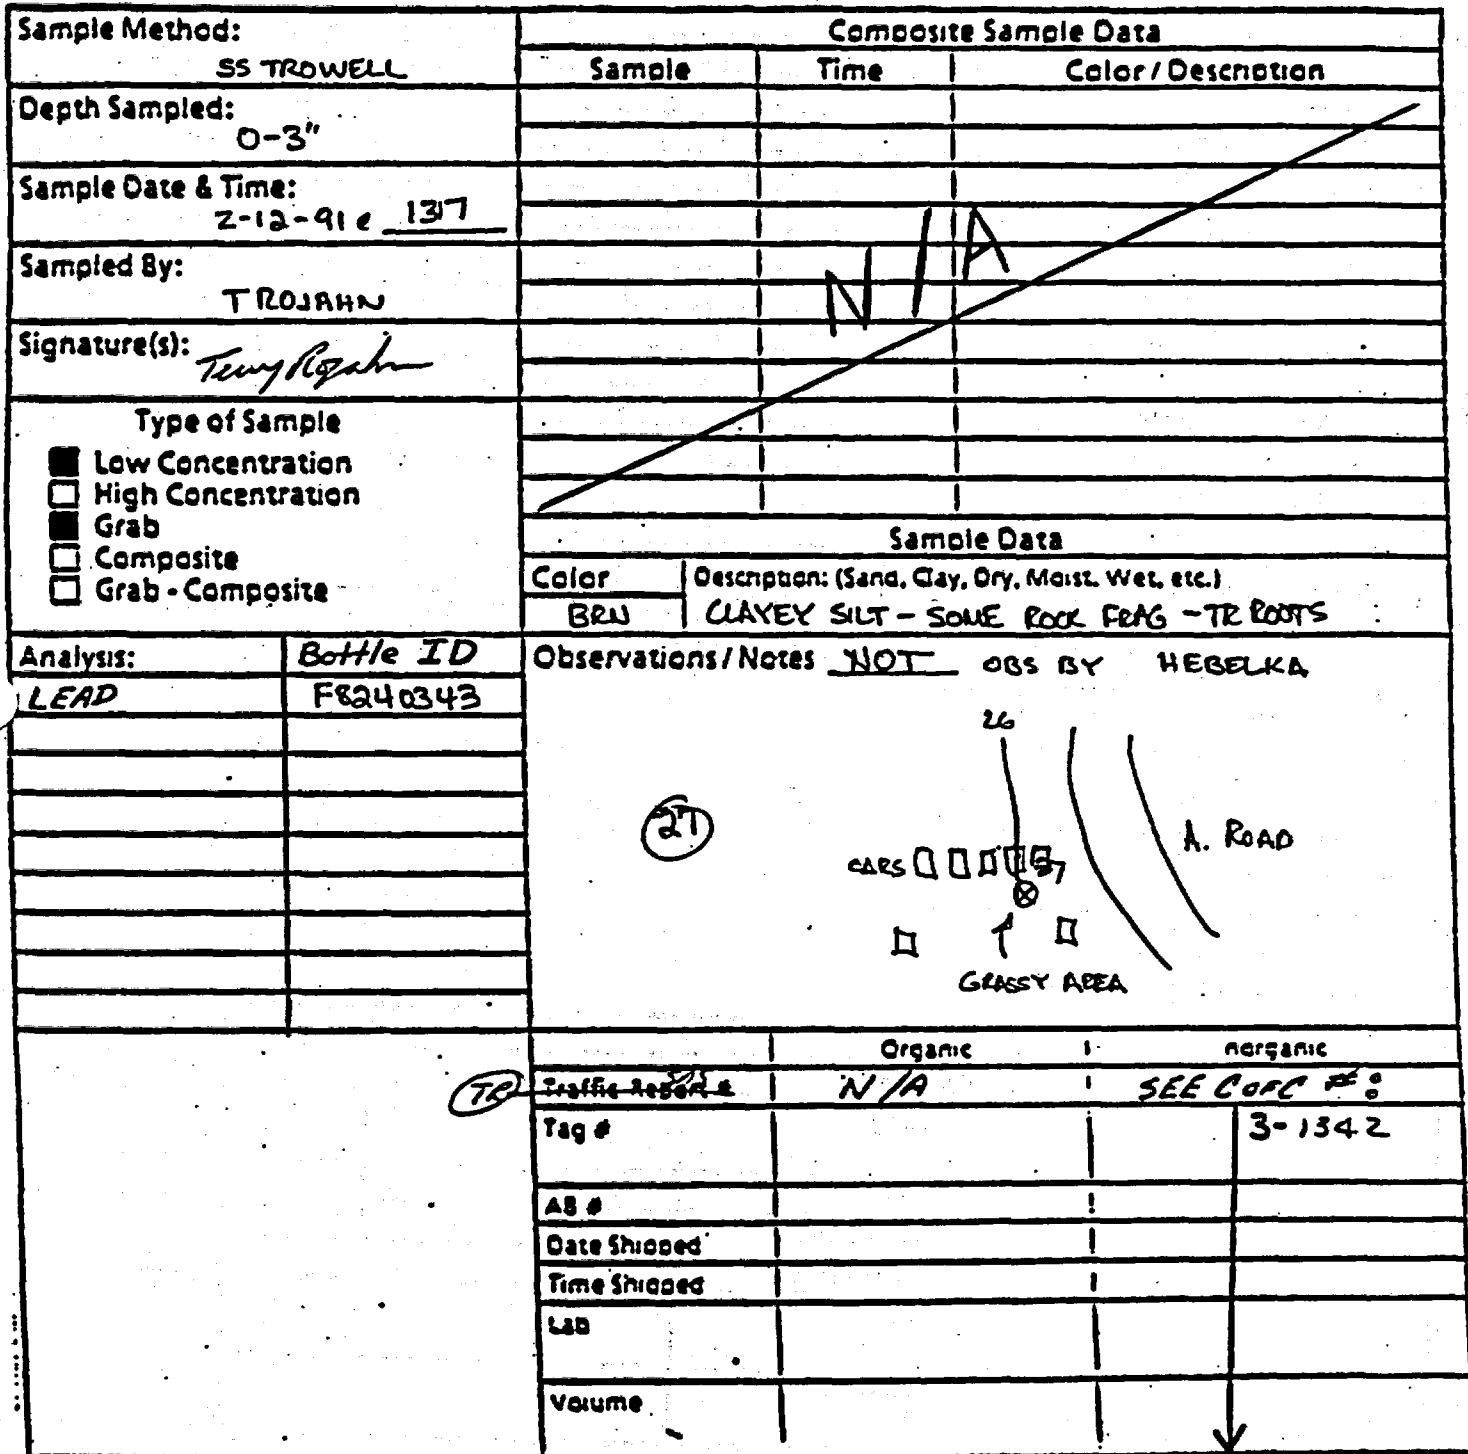 Sample Method:
SS TROWELL
Depth Sampled:
0-3"
Sample Date & Time:
2-12-91 @ 1317
Sampled By:
TROJAHN
Signature(s):
Type of Sample
Low Concentration
High Concentration
Grab
Composite
Grab - Composite
Composite Sample Data
Sample Time Color / Description
N/A
Sample Data
Color Description: (Sand, Clay, Dry, Moist, Wet, etc.)
BRN CLAYEY SILT - SOME ROCK FRAG - TR ROOTS
Analysis: Bottle ID
LEAD F8240343
Observations / Notes NOT OBS BY HEBELKA
26
27
CARS
27
A. ROAD
GRASSY AREA
Organic norganic
TR Traffic Report # N/A SEE C OF C #:
Tag # 3-1342
AB #
Date Shipped
Time Shipped
Lab
Volume